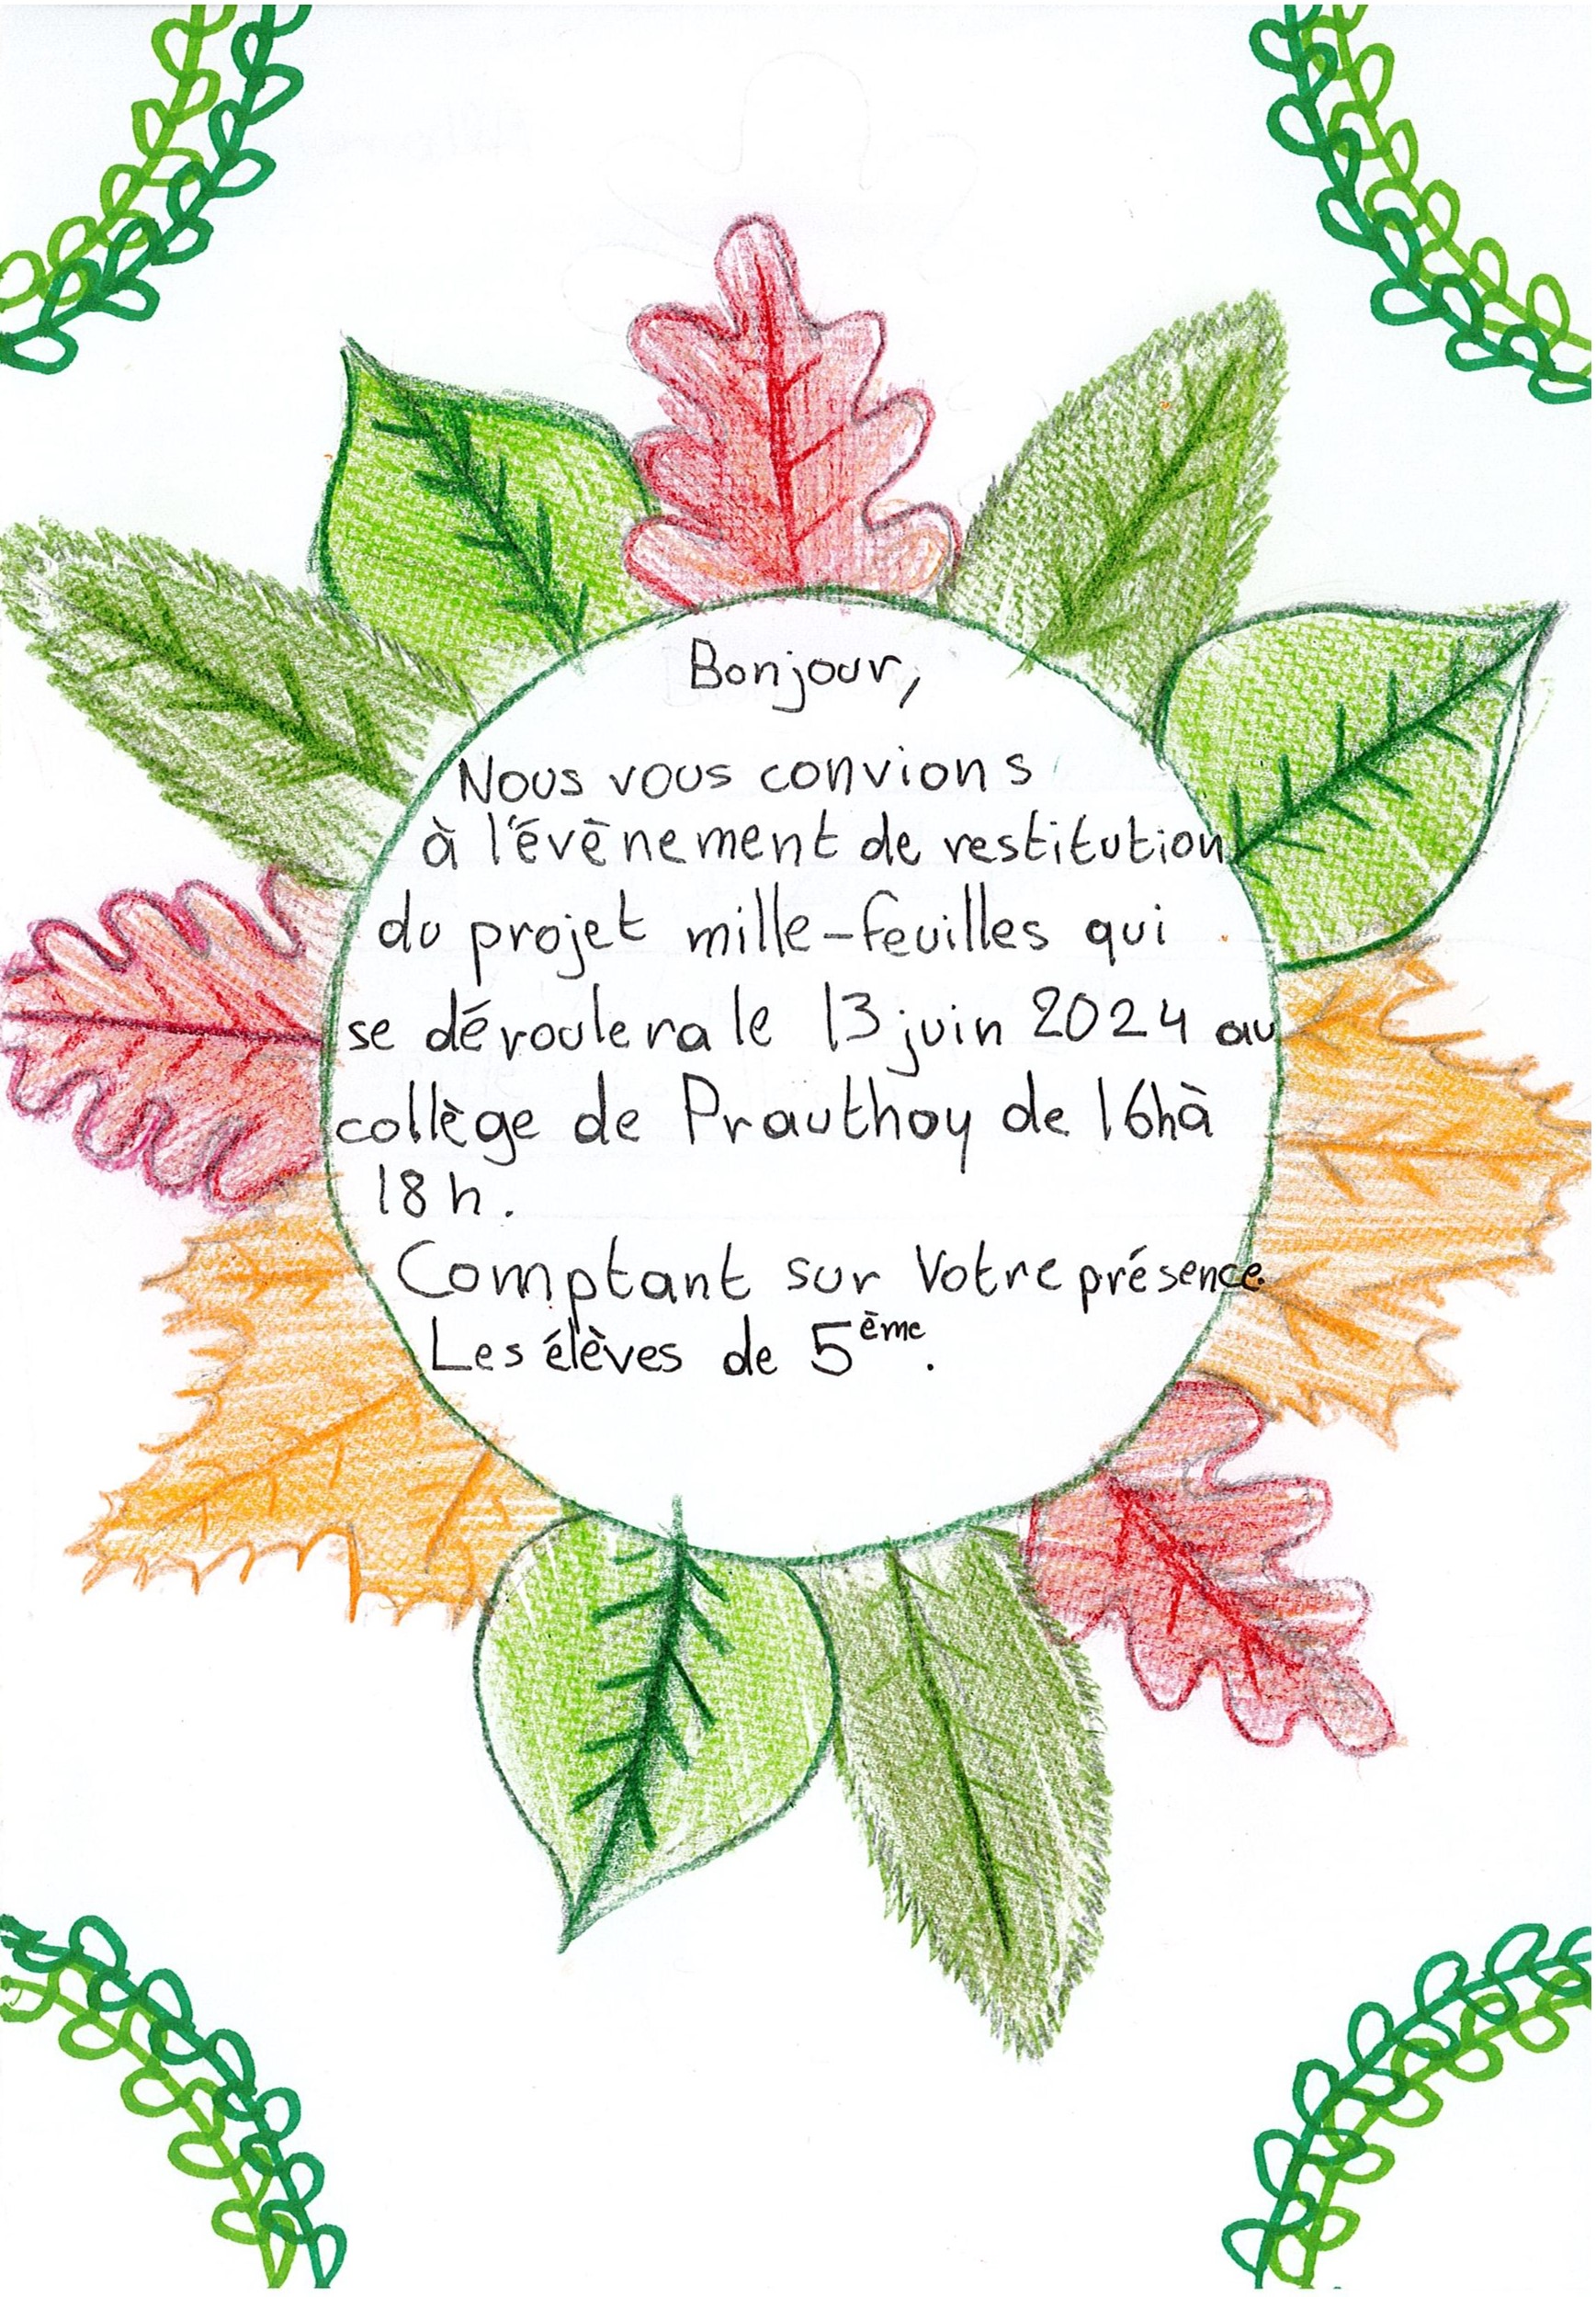 Bonjour,
Nous vous convions
à l'évènement de restitution
du projet mille-feuilles qui
se déroulera le 13 juin 2024 au
collège de Prauthoy de 16h à
18h.
Comptant sur Votre présence.
Les élèves de 5ème.